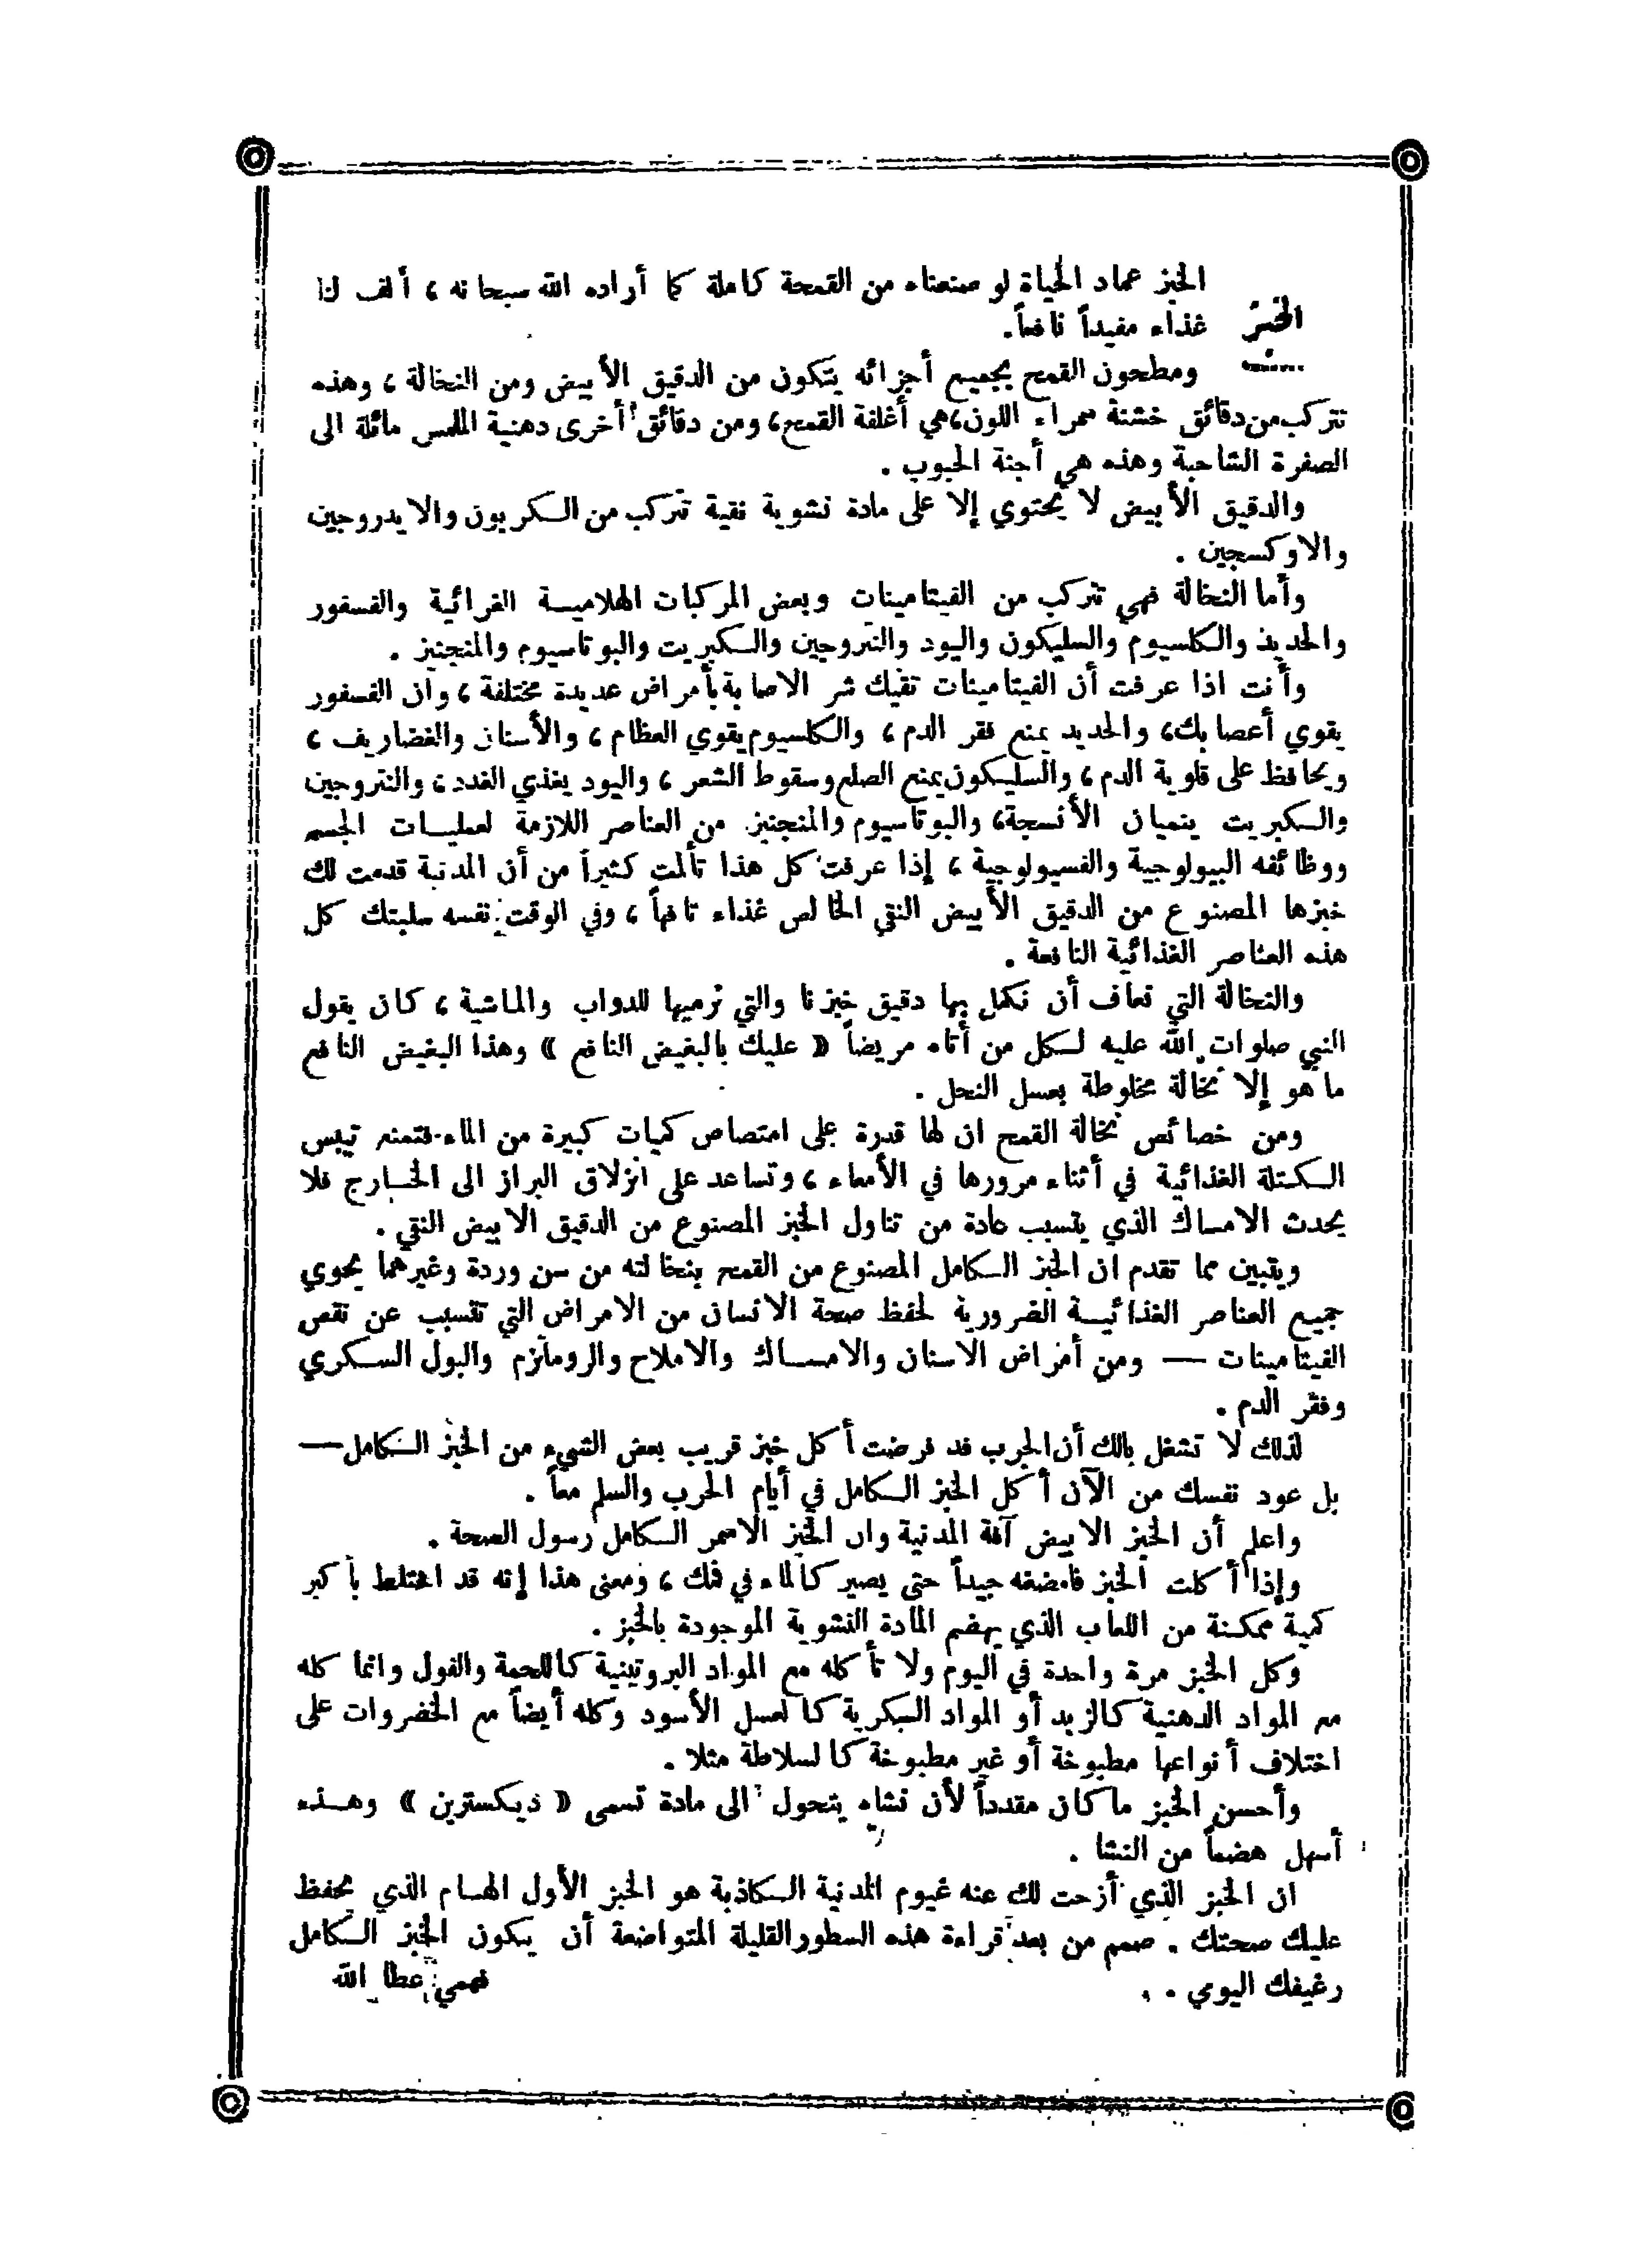 الخبز عماد الحياة لو صنعناه من القمحة كاملة كما أراده الله سبحانه ، ألف لنا
الخبز
غذاء مفيداً نافعاً.
ومطحون القمح بجميع أجزائه يتكون من الدقيق الأبيض ومن النخالة ، وهذه
تتركب من دقائق خشنة سمراء اللون، هي أغلفة القمح، ومن دقائق أخرى دهنية الملمس مائلة الى
الصفرة الشاحبة وهذه هي أجنة الحبوب .
والدقيق الأبيض لا يحتوي إلا على مادة نشوية نقية تتركب من الكربون والايدروجين
والاوكسجين .
وأما النخالة فهي تتركب من الفيتامينات وبعض المركبات الهلامية الغرائية والفسفور
والحديد والكلسيوم والسليكون واليود والنتروجين والكبريت والبوتاسيوم والمنجنيز .
وأنت اذا عرفت أن الفيتامينات تقيك شر الاصابة بأمراض عديدة مختلفة ، وان الفسفور
يقوي أعصابك، والحديد يمنع فقر الدم ، والكلسيوم يقوي العظام ، والأسنان والغضاريف ،
ويحافظ على قلوية الدم ، والسليكون يمنع الصلع وسقوط الشعر ، واليود يغذي الغدد ، والنتروجين
والكبريت ينميان الأنسجة، والبوتاسيوم والمنجنيز من العناصر اللازمة لعمليات الجسم
ووظائفه البيولوجية والفسيولوجية ، إذا عرفت كل هذا تألمت كثيراً من أن المدنية قدمت لك
خبزها المصنوع من الدقيق الأبيض النقي الخالص غذاء تافهاً ، وفي الوقت نفسه سلبتك كل
هذه العناصر الغذائية النافعة .
والنخالة التي تعاف أن نكمل بها دقيق خبزنا والتي نرميها للدواب والماشية ، كان يقول
النبي صلوات الله عليه لكل من أتاه مريضاً « عليك بالبغيض النافع » وهذا البغيض النافع
ما هو إلا نخالة مخلوطة بعسل النحل .
ومن خصائص نخالة القمح ان لها قدرة على امتصاص كميات كبيرة من الماء فتمنع تيبس
الكتلة الغذائية في أثناء مرورها في الأمعاء ، وتساعد على انزلاق البراز الى الخارج فلا
يحدث الامساك الذي يتسبب عادة من تناول الخبز المصنوع من الدقيق الابيض النقي .
ويتبين مما تقدم ان الخبز الكامل المصنوع من القمح بنخالته من سن وردة وغيرهما يحوي
جميع العناصر الغذائية الضرورية لحفظ صحة الانسان من الامراض التي تتسبب عن نقص
الفيتامينات — ومن أمراض الاسنان والامساك والاملاح والروماتزم والبول السكري
وفقر الدم .
لذلك لا تشغل بالك أن الحرب قد فرضت أكل خبز قريب بعض الشيء من الخبز الكامل —
بل عود نفسك من الآن أكل الخبز الكامل في أيام الحرب والسلم معاً .
واعلم أن الخبز الابيض آفة المدنية وان الخبز الاسمر الكامل رسول الصحة .
وإذا أكلت الخبز فامضغه جيداً حتى يصير كالماء في فمك ، ومعنى هذا إنه قد اختلط بأكبر
كمية ممكنة من اللعاب الذي يهضم المادة النشوية الموجودة بالخبز .
وكل الخبز مرة واحدة في اليوم ولا تأكله مع المواد البروتينية كاللحمة والفول وانما كله
مع المواد الدهنية كالزبد أو المواد السكرية كالعسل الأسود وكله أيضاً مع الخضروات على
اختلاف أنواعها مطبوخة أو غير مطبوخة كالسلاطة مثلا .
وأحسن الخبز ما كان مقدداً لأن نشاه يتحول الى مادة تسمى « ديكسترين » وهذه
أسهل هضماً من النشا .
ان الخبز الذي أزحت لك عنه غيوم المدنية الكاذبة هو الخبز الأول الهام الذي يحفظ
عليك صحتك . صمم من بعد قراءة هذه السطور القليلة المتواضعة أن يكون الخبز الكامل
رغيفك اليومي . .
فهمي عطا الله